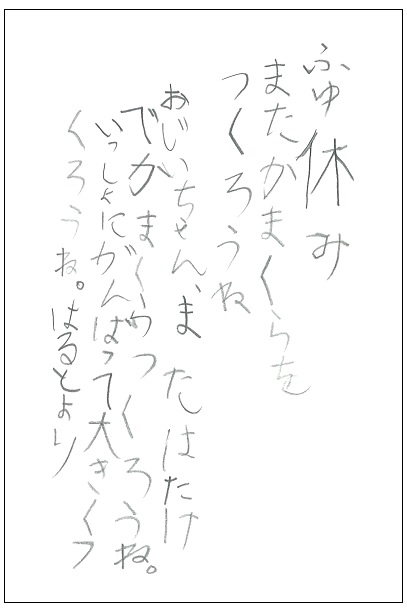 ふゆ休み
またかまくらを
つくろうね
おじいちゃん、またはたけ
でかまくらつくろうね。
いっしょにがんばって大きくつ
くろうね。はるとより